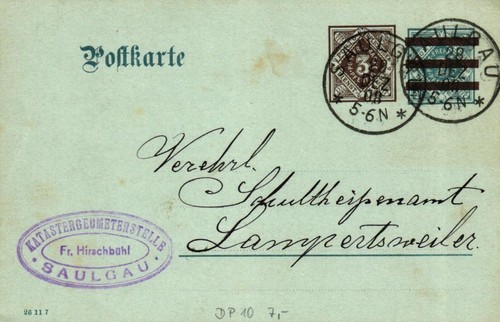 Postkarte
SAULGAU
28
DEZ
06
5-6N
SAULGAU
28
DEZ
06
5-6N
Verehrl.
Schultheißenamt
Lampertsweiler.
KATASTERGEOMETERSTELLE
Fr. Hirschbühl
SAULGAU
26 11 7
DP 10 7,-